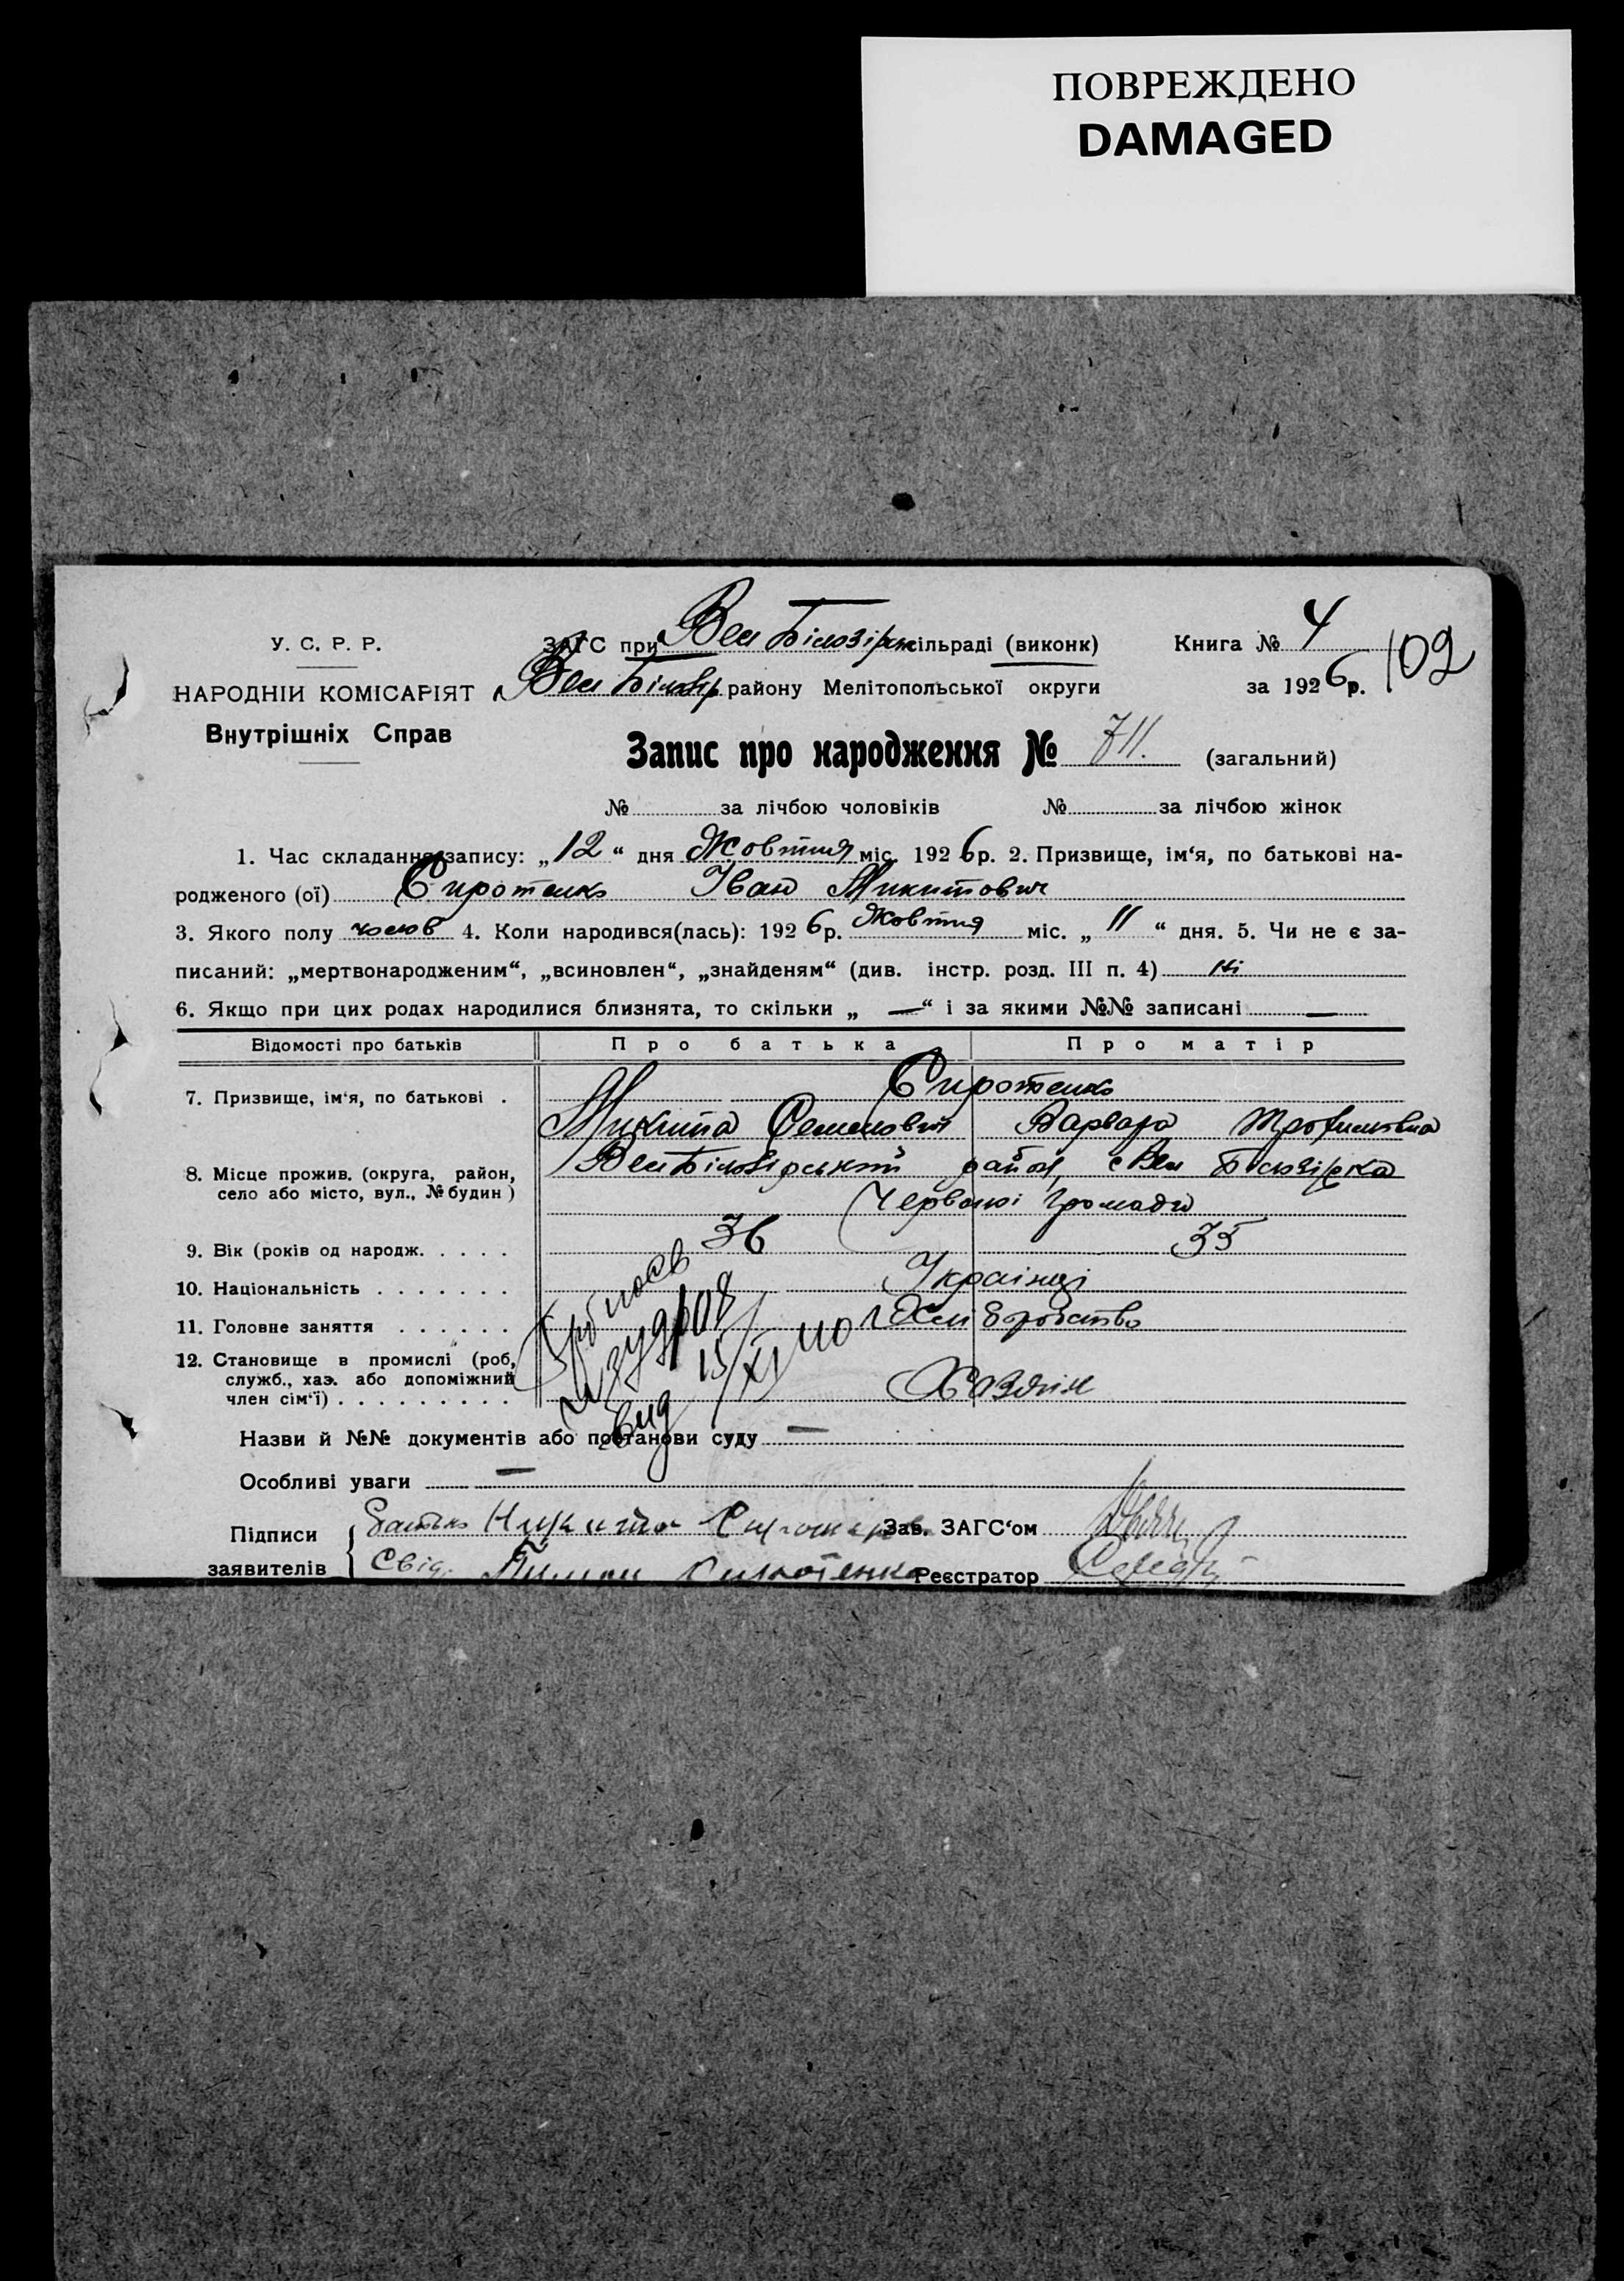 ПОВРЕЖДЕНО
DAMAGED
У. С. Р. Р.
НАРОДНІЙ КОМІСАРІЯТ
Внутрішніх Справ
ЗАГС при Вел Білозірк сільраді (виконк)
Вел Білозір району Мелітопольської округи
Книга № 4
за 1926 р.
102
Запис про народження № 711. (загальний)
№ за лічбою чоловіків № за лічбою жінок
1. Час складання запису: „12“ дня Жовтня міс. 1926 р. 2. Призвище, ім‘я, по батькові на-
родженого (ої) Сиротенко Іван Микитович
3. Якого полу чолов 4. Коли народився(лась): 1926 р. Жовтня міс. „11“ дня. 5. Чи не є за-
писаний: „мертвонародженим“, „всиновлен“, „знайденям“ (див. інстр. розд. III п. 4) Ні
6. Якщо при цих родах народилися близнята, то скільки „—“ і за якими №№ записані —
Відомості про батьків Про батька Про матір
7. Призвище, ім‘я, по батькові . Сиротенко
Микита Семенович Варвара Трофимовна
8. Місце прожив. (округа, район, село або місто, вул., № будин) Вел Білозірський район, с Вел Білозірка
Червоної Громади
9. Вік (років од народж. . . . . 36 35
10. Національність . . . . . . . Українці
11. Головне заняття . . . . . . Хліборобство
12. Становище в промислі (роб,
служб., хаз. або допоміжний
член сім‘ї) . . . . . . . . . Хазяїн
15/XI
Назви й №№ документів або постанови суду —
Особливі уваги —
Підписи заявителів
Батько Никита Зав. ЗАГС‘ом
Свід. Сиротенко Реєстратор